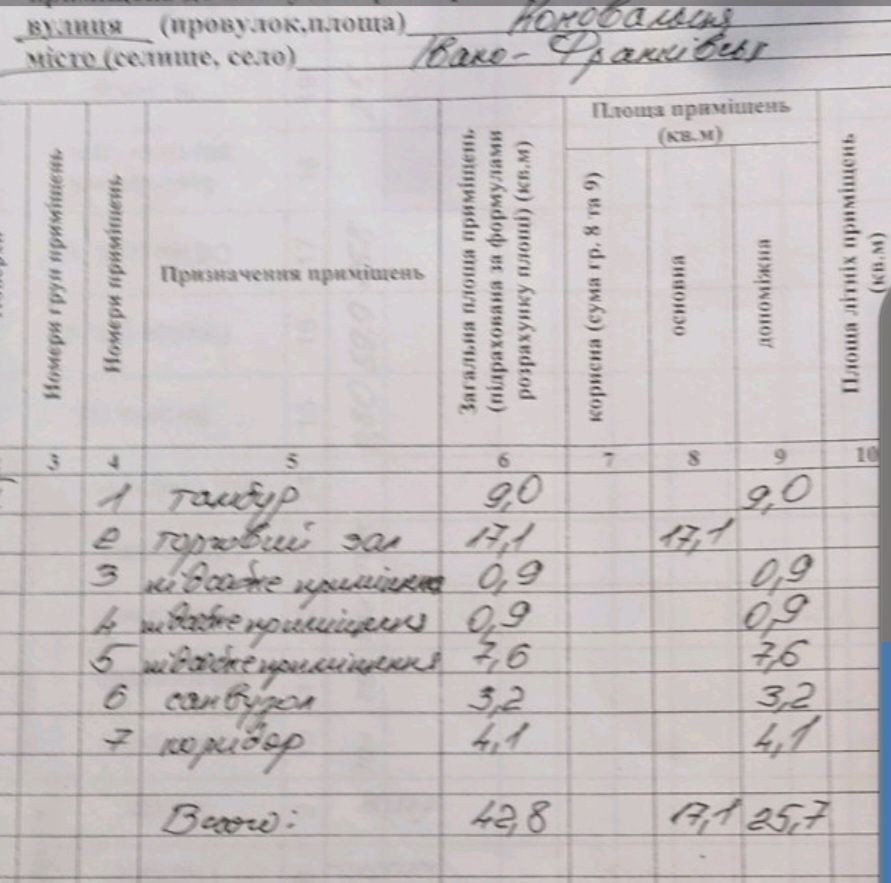 вулиця (провулок,площа) Коновальця
місто (селище, село) Івано-Франківськ
Номери груп приміщень
Номери приміщень
Призначення приміщень
Загальна площа приміщень (підрахована за формулами розрахунку площі) (кв.м)
Площа приміщень (кв.м)
корисна (сума гр. 8 та 9)
основна
допоміжна
Площа літніх приміщень (кв.м)
3 4 5 6 7 8 9 10
1 тамбур 9,0 9,0
2 торговий зал 17,1 17,1
3 підсобне приміщення 0,9 0,9
4 підсобне приміщення 0,9 0,9
5 підсобне приміщення 7,6 7,6
6 санвузол 3,2 3,2
7 коридор 4,1 4,1
Всього: 42,8 17,1 25,7